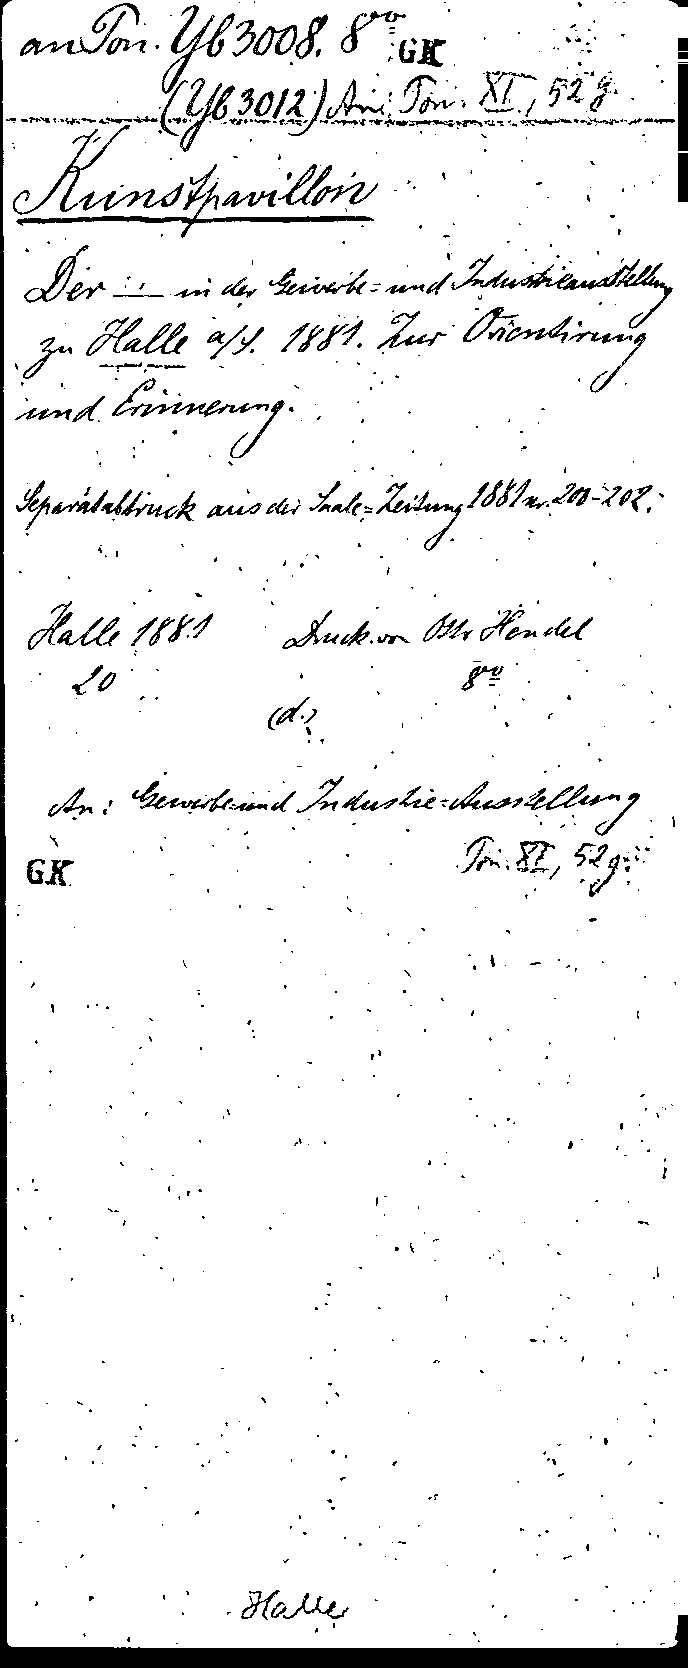 an Pon. Yb 3008. 8vo GK
(Yb 3012) An: Pon. XI, 52 g
Kunstpavillon
Der — in der Gewerbe= und Industrieausstellung
zu Halle a/S. 1881. Zur Orientirung
und Erinnerung.
Separatabdruck aus der Saale=Zeitung 1881 nr. 200-202.
Halle 1881 Druck von Otto Hendel
20 8vo
(d.)
An: Gewerbe und Industrie=Ausstellung
GK Pon. XI, 52 g.
Halle